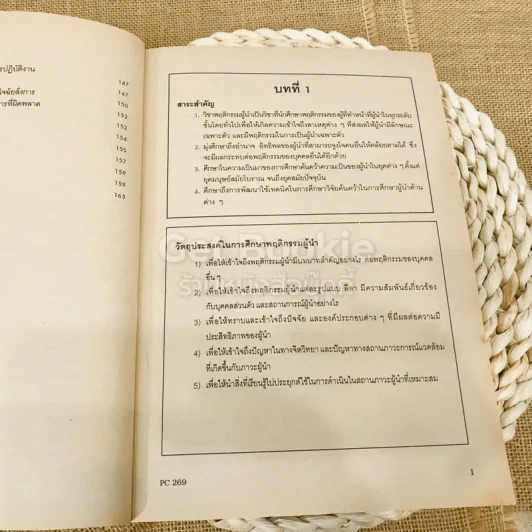 ปฏิบัติงาน
147
147
150
152
153
154
159
159
163
บทที่ 1
สาระสำคัญ
1. วิชาพฤติกรรมผู้นำเป็นวิชาที่นักศึกษาพฤติกรรมของผู้ที่ทำหน้าที่ผู้นำในทุกระดับ
ชั้นโดยทั่วไปเพื่อให้เกิดความเข้าใจถึงสาเหตุต่าง ๆ ที่ส่งผลให้ผู้นำมีลักษณะ
เฉพาะตัว และมีพฤติกรรมในการเป็นผู้นำเฉพาะตัว
2. มุ่งศึกษาถึงอำนาจ อิทธิพลของผู้นำที่สามารถจูงใจคนอื่นให้คล้อยตามได้ ซึ่ง
จะมีผลกระทบต่อพฤติกรรมของบุคคลอื่นได้อีกด้วย
3. ศึกษาในความเป็นมาของการศึกษาค้นคว้าความเป็นของผู้นำในยุคต่าง ๆ ตั้งแต่
ยุคมนุษย์สมัยโบราณ จนถึงยุคสมัยปัจจุบัน
4. ศึกษาถึงการพัฒนาใช้เทคนิคในการศึกษาวิจัยค้นคว้าในการศึกษาผู้นำด้าน
ต่าง ๆ
วัตถุประสงค์ในการศึกษาพฤติกรรมผู้นำ
Get Dookie
1) เพื่อให้เข้าใจถึงพฤติกรรมผู้นำมีบทบาทสำคัญอย่างไร ต่อพฤติกรรมของบุคคล
อื่น ๆ
2) เพื่อให้เข้าใจถึงพฤติกรรมผู้นำแต่ละรูปแบบ ลีลา มีความสัมพันธ์เกี่ยวข้อง
กับบุคคลส่วนตัว และสถานการณ์ผู้นำอย่างไร
3) เพื่อให้ทราบและเข้าใจถึงปัจจัย และองค์ประกอบต่าง ๆ ที่มีผลต่อความมี
ประสิทธิภาพของผู้นำ
4) เพื่อให้เข้าใจถึงปัญหาในทางจิตวิทยา และปัญหาทางสถานภาวะการณ์แวดล้อม
ที่เกิดขึ้นกับภาวะผู้นำ
5) เพื่อให้นำสิ่งที่เรียนรู้ไปประยุกต์ใช้ในการดำเนินในสถานภาวะผู้นำที่เหมาะสม
PC 269
1